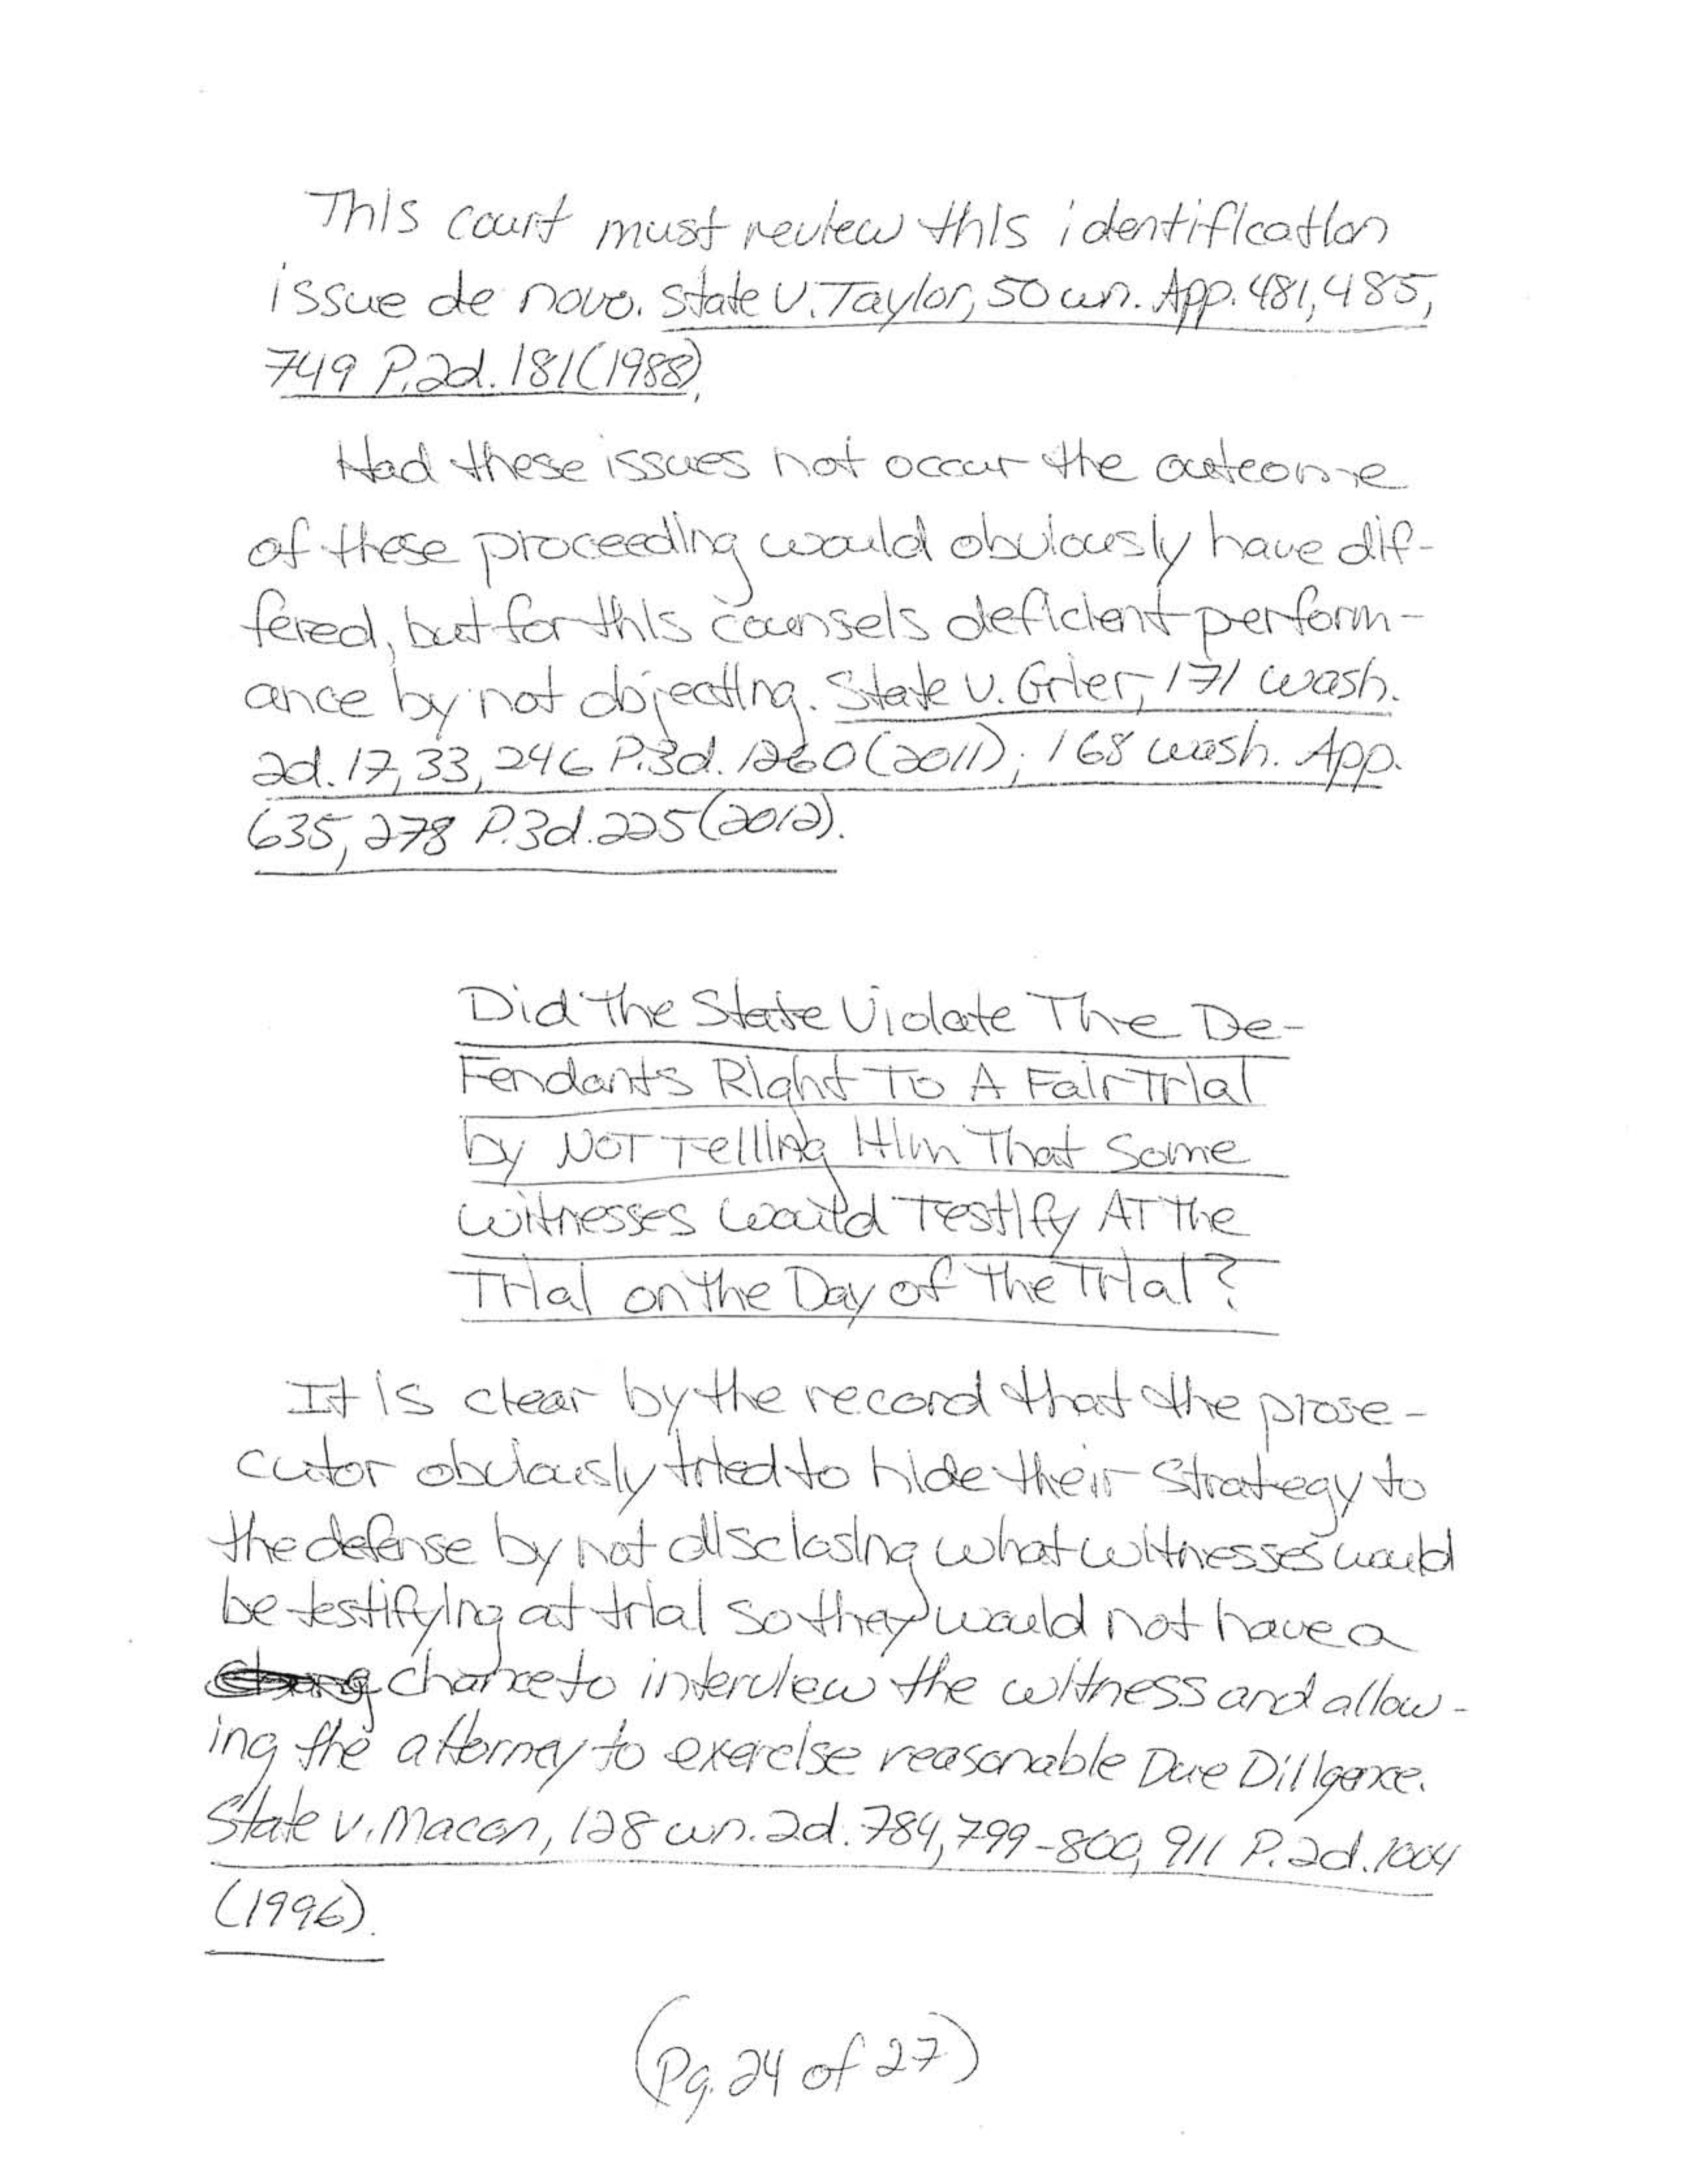 This court must review this identification
issue de novo. State v. Taylor, 50 wn. App. 481, 485,
749 P.2d. 181 (1988),
Had these issues not occur the outcome
of these proceeding would obviously have dif-
fered, but for this counsels deficient perform-
ance by not objecting. State v. Grier, 171 wash.
2d. 17, 33, 246 P.3d. 1260 (2011); 168 wash. App.
635, 278 P.3d. 225 (2012).
Did The State Violate The De-
Fendants Right To A Fair Trial
by NOT Telling Him That Some
Witnesses Would Testify AT The
Trial on the Day of The Trial?
It is clear by the record that the prose-
cutor obviously tried to hide their strategy to
the defense by not disclosing what witnesses would
be testifying at trial so they would not have a
chance to interview the witness and allow-
ing the attorney to exercise reasonable Due Diligence.
State v. Macon, 128 wn. 2d. 784, 799-800, 911 P.2d. 1004
(1996).
(Pg. 24 of 27)